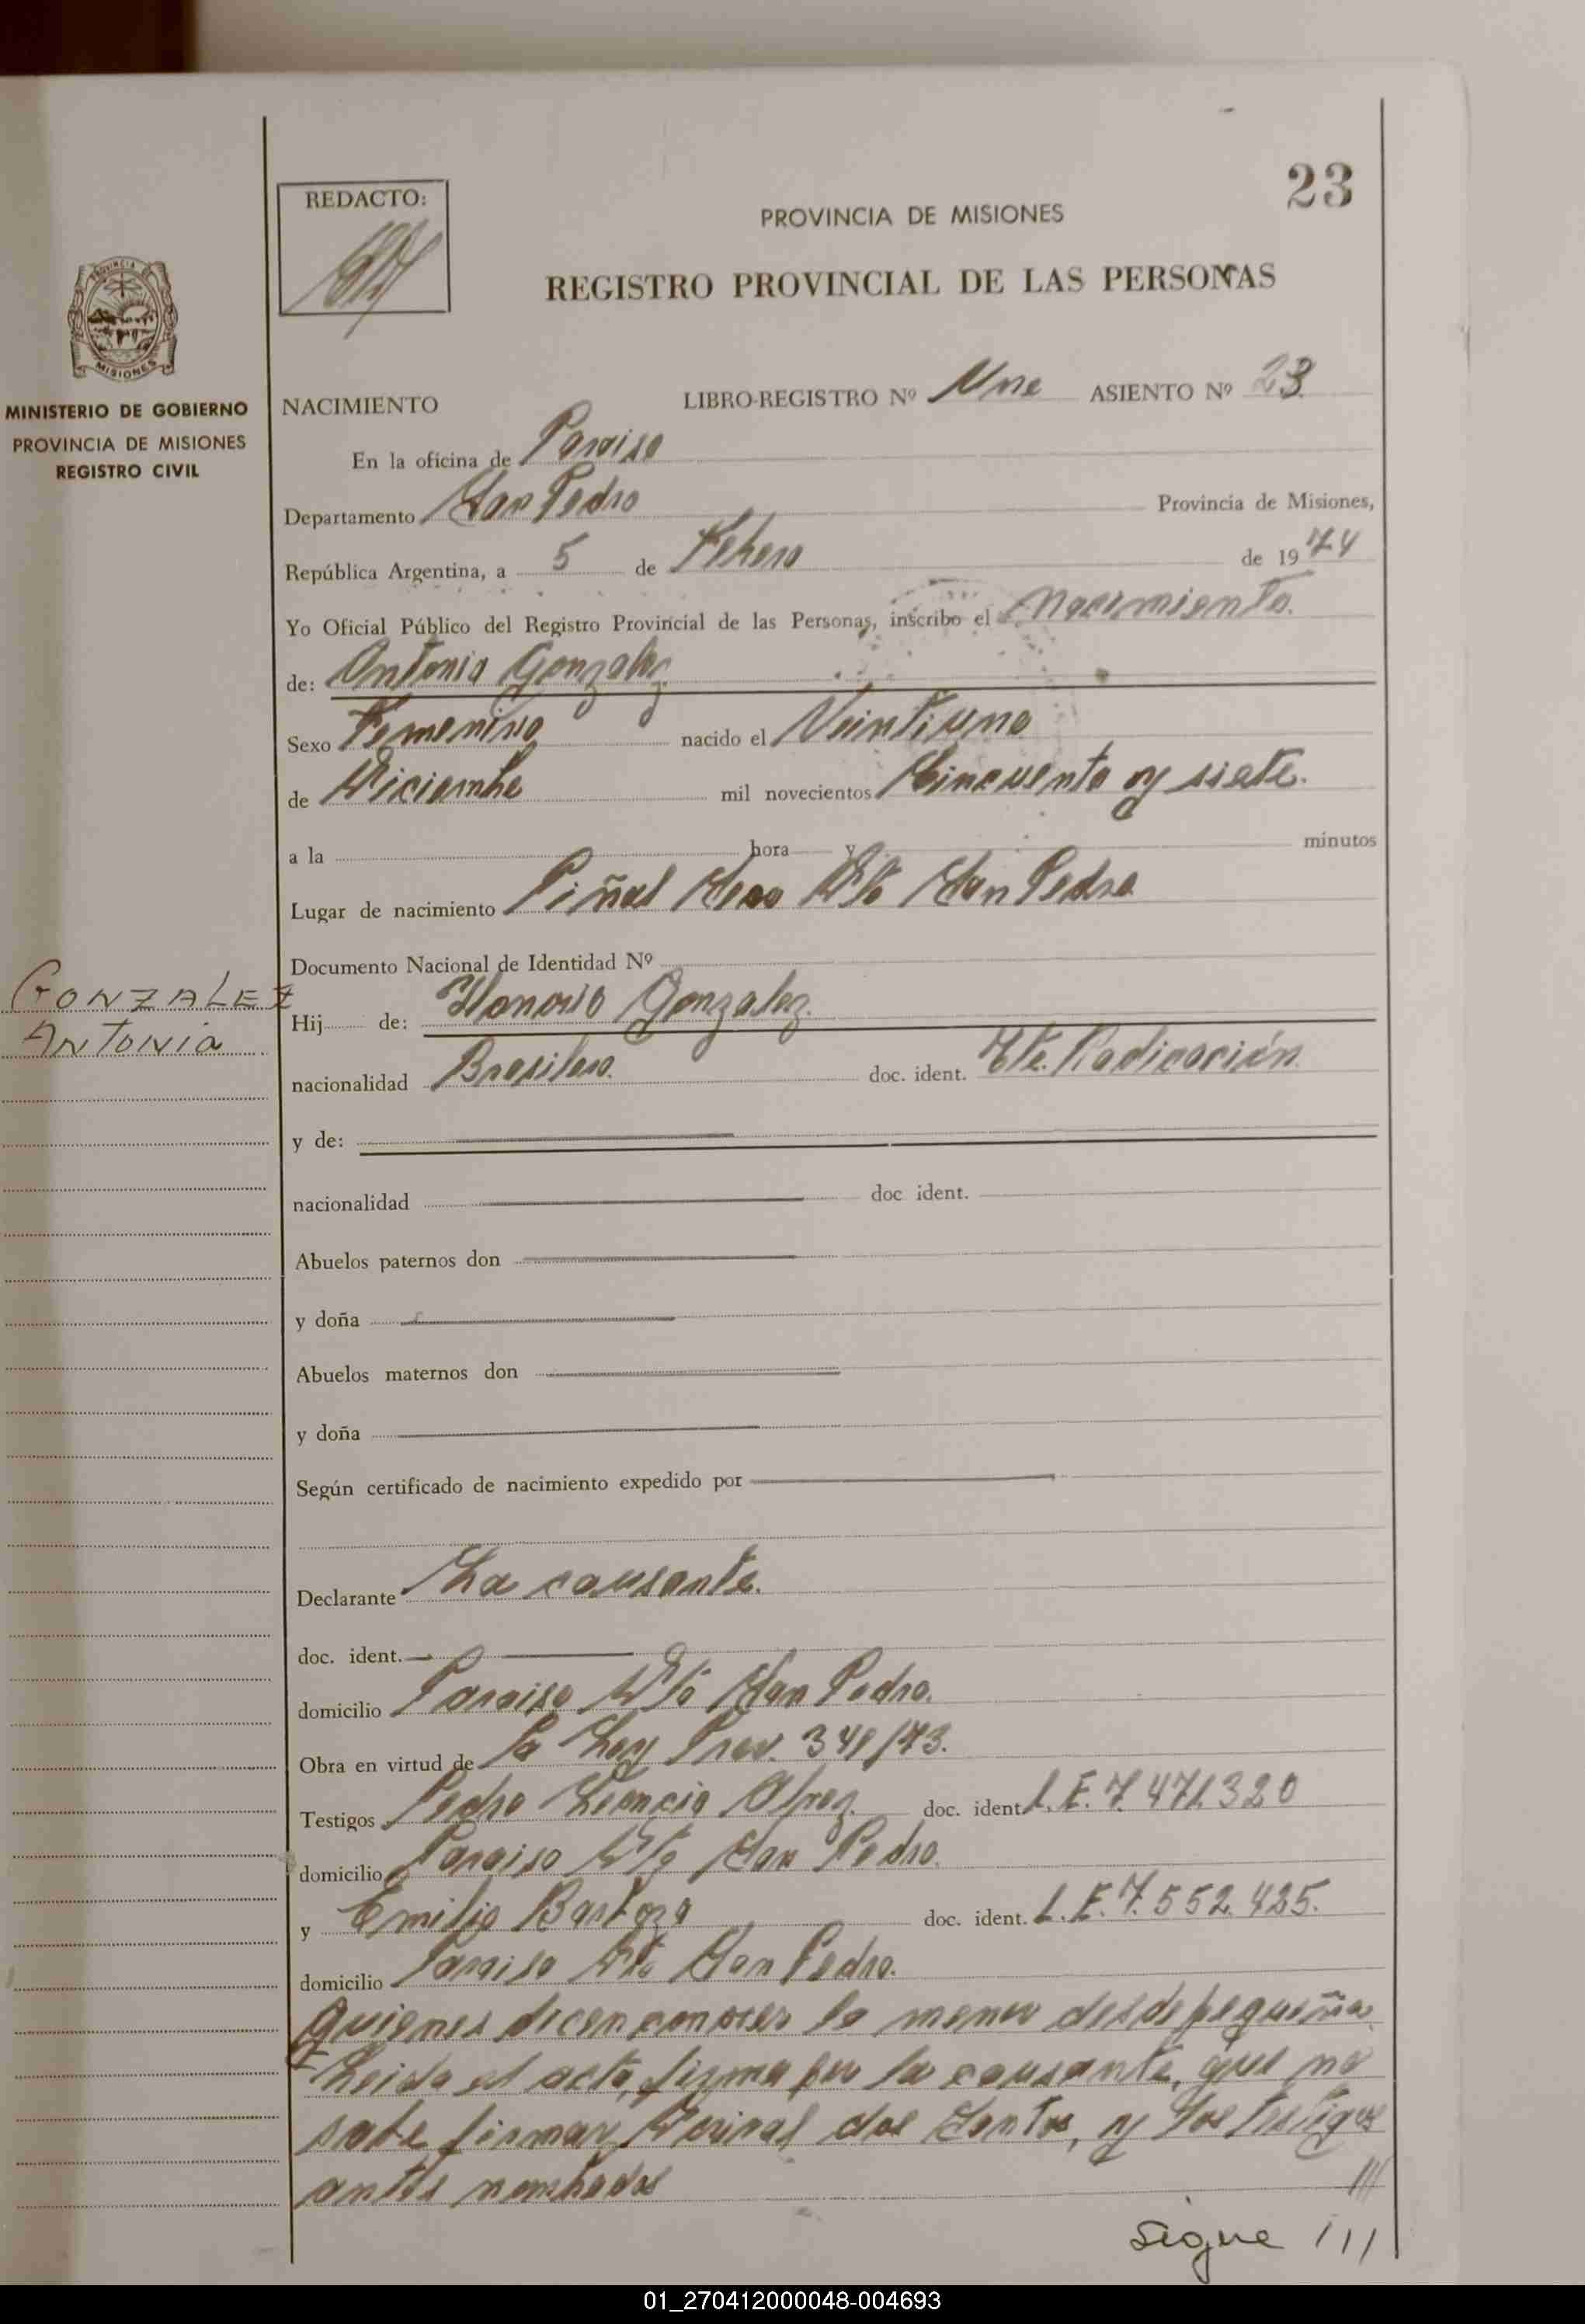 23
REDACTO:
PROVINCIA DE MISIONES
REGISTRO PROVINCIAL DE LAS PERSONAS
PROVINCIA DE
MISIONES
MINISTERIO DE GOBIERNO
PROVINCIA DE MISIONES
REGISTRO CIVIL
NACIMIENTO LIBRO-REGISTRO Nº Uno ASIENTO Nº 23
En la oficina de Paraiso
Departamento San Pedro Provincia de Misiones,
República Argentina, a 5 de Febrero de 1974
Yo Oficial Público del Registro Provincial de las Personas, inscribo el Nacimiento.
de: Antonia Gonzalez
Sexo Femenino nacido el Veintiuno
de Diciembre mil novecientos Cincuenta y siete.
a la hora y minutos
Lugar de nacimiento Piñal Seco Dto San Pedro
Documento Nacional de Identidad Nº
GONZALEZ
ANTONIA
Hij de: Honorio Gonzalez.
nacionalidad Brasilero. doc. ident. Radicación.
y de:
nacionalidad doc ident.
Abuelos paternos don
y doña
Abuelos maternos don
y doña
Según certificado de nacimiento expedido por
Declarante La causante.
doc. ident.
domicilio Paraiso Dto San Pedro.
Obra en virtud de la Ley Prov. 341/73.
Testigos Pedro Leoncio doc. ident. L.E. 7.471.320
domicilio Paraiso Dto San Pedro.
y Emilio doc. ident. L.E. 7.552.425.
domicilio Paraiso Dto San Pedro.
quienes dicen conocer la menor desde pequeña.
Leida el acta, firma por la causante, que no
sabe firmar, dos Santos, y los testigos
antes nombrados ///
Sigue ///
01_270412000048-004693